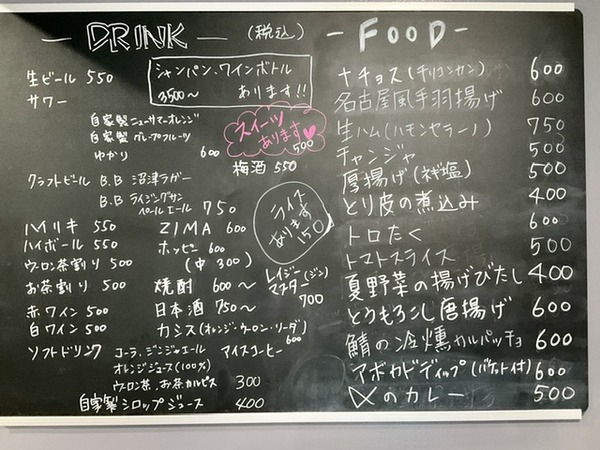 DRINK (税込)
生ビール 550
シャンパン、ワインボトル
3500〜 あります!!
サワー
自家製ニューサマーオレンジ
自家製グレープフルーツ
ゆかり 600
スイーツ
あります
500
梅酒 550
クラフトビール B.B 沼津ラガー
B.B ライジングサン
ペールエール 750
ハイリキ 550
ハイボール 550
ウーロン茶割り 500
お茶割り 500
赤ワイン 500
白ワイン 500
ZIMA 600
ホッピー 600
(中 300)
焼酎 600〜
日本酒 750〜
カシス(オレンジ・ウーロン・ソーダ)
600
ライス
あります
150
レイジー
マスター(ジン)
700
ソフトドリンク コーラ、ジンジャエール アイスコーヒー
オレンジジュース(100%)
ウーロン茶、お茶カルピス 300
自家製シロップジュース 400
FOOD
ナチョス(チリコンカン) 600
名古屋風手羽揚げ 600
生ハム(ハモンセラーノ) 750
チャンジャ 500
厚揚げ(ねぎ塩) 500
とり皮の煮込み 400
トロたく 600
トマトスライス 500
夏野菜の揚げびたし 400
とうもろこし唐揚げ 600
鯖の冷燻カルパッチョ 600
アボカドディップ(バケット付) 600
〆のカレー 500